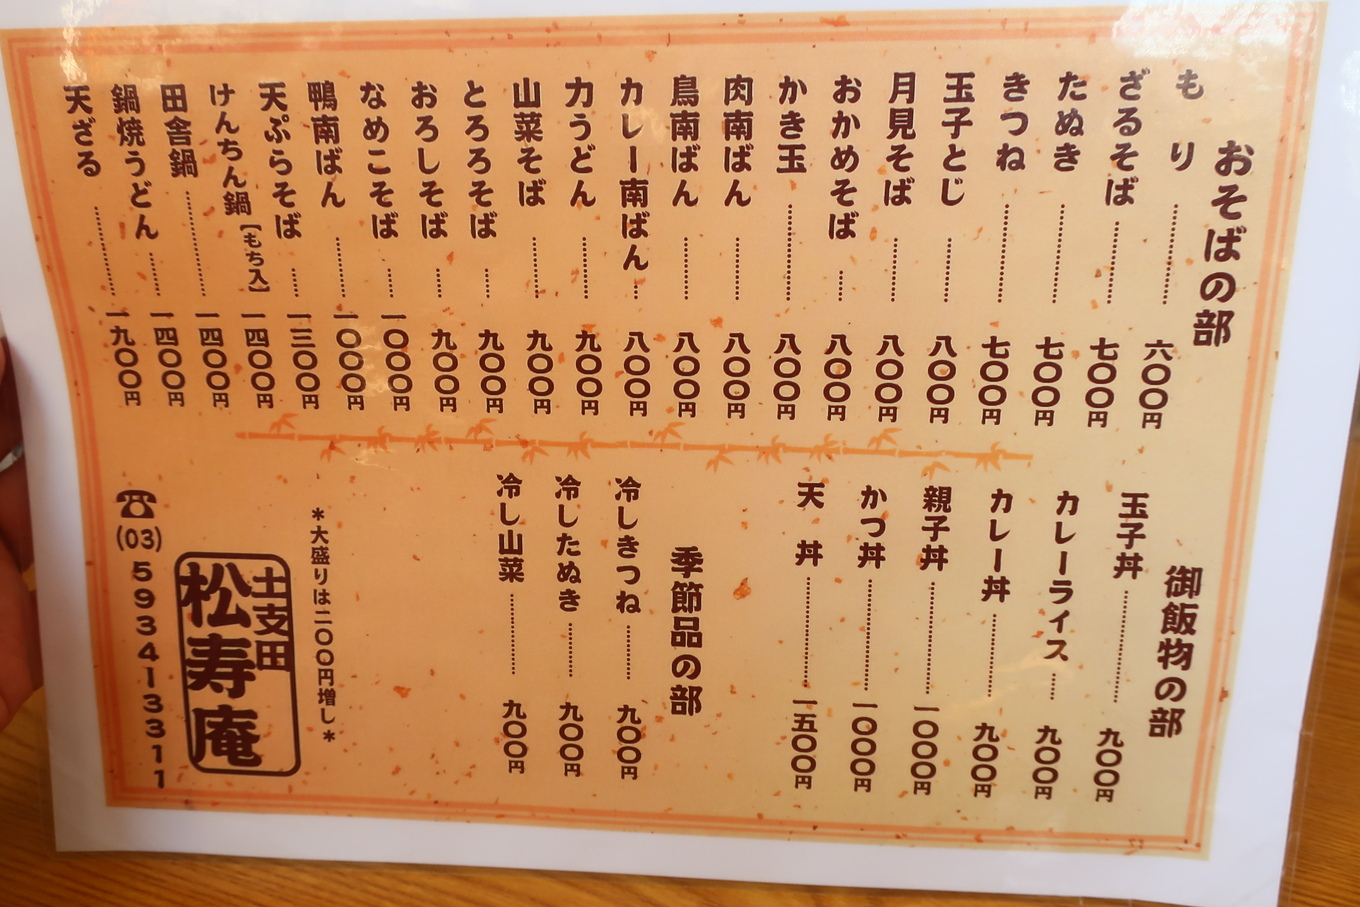 おそばの部
もり……六〇〇円
ざるそば……七〇〇円
たぬき……七〇〇円
きつね……七〇〇円
玉子とじ……八〇〇円
月見そば……八〇〇円
おかめそば……八〇〇円
かき玉……八〇〇円
肉南ばん……八〇〇円
鳥南ばん……八〇〇円
カレー南ばん……八〇〇円
力うどん……九〇〇円
山菜そば……九〇〇円
とろろそば……九〇〇円
おろしそば……九〇〇円
なめこそば……一〇〇〇円
鴨南ばん……一〇〇〇円
天ぷらそば……一三〇〇円
けんちん鍋[もち入]一四〇〇円
田舎鍋……一四〇〇円
鍋焼うどん……一四〇〇円
天ざる……一九〇〇円
御飯物の部
玉子丼……九〇〇円
カレーライス……九〇〇円
カレー丼……九〇〇円
親子丼……一〇〇〇円
かつ丼……一〇〇〇円
天丼……一五〇〇円
季節品の部
冷しきつね……九〇〇円
冷したぬき……九〇〇円
冷し山菜……九〇〇円
*大盛りは二〇〇円増し*
土支田
松寿庵
☎(03)5934-3311